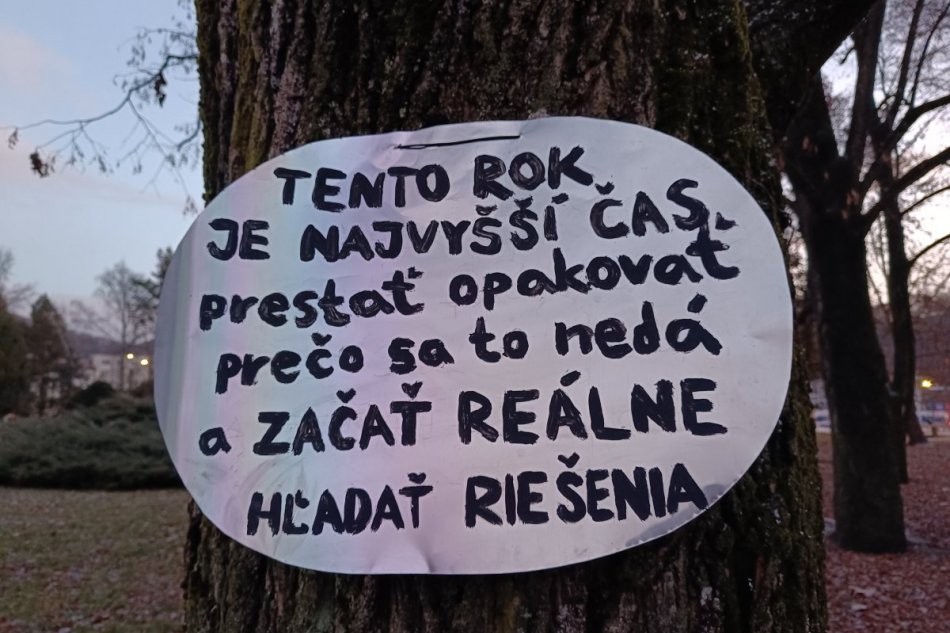 TENTO ROK
JE NAJVYŠŠÍ ČAS
prestať opakovať
prečo sa to nedá
a ZAČAŤ REÁLNE
HĽADAŤ RIEŠENIA